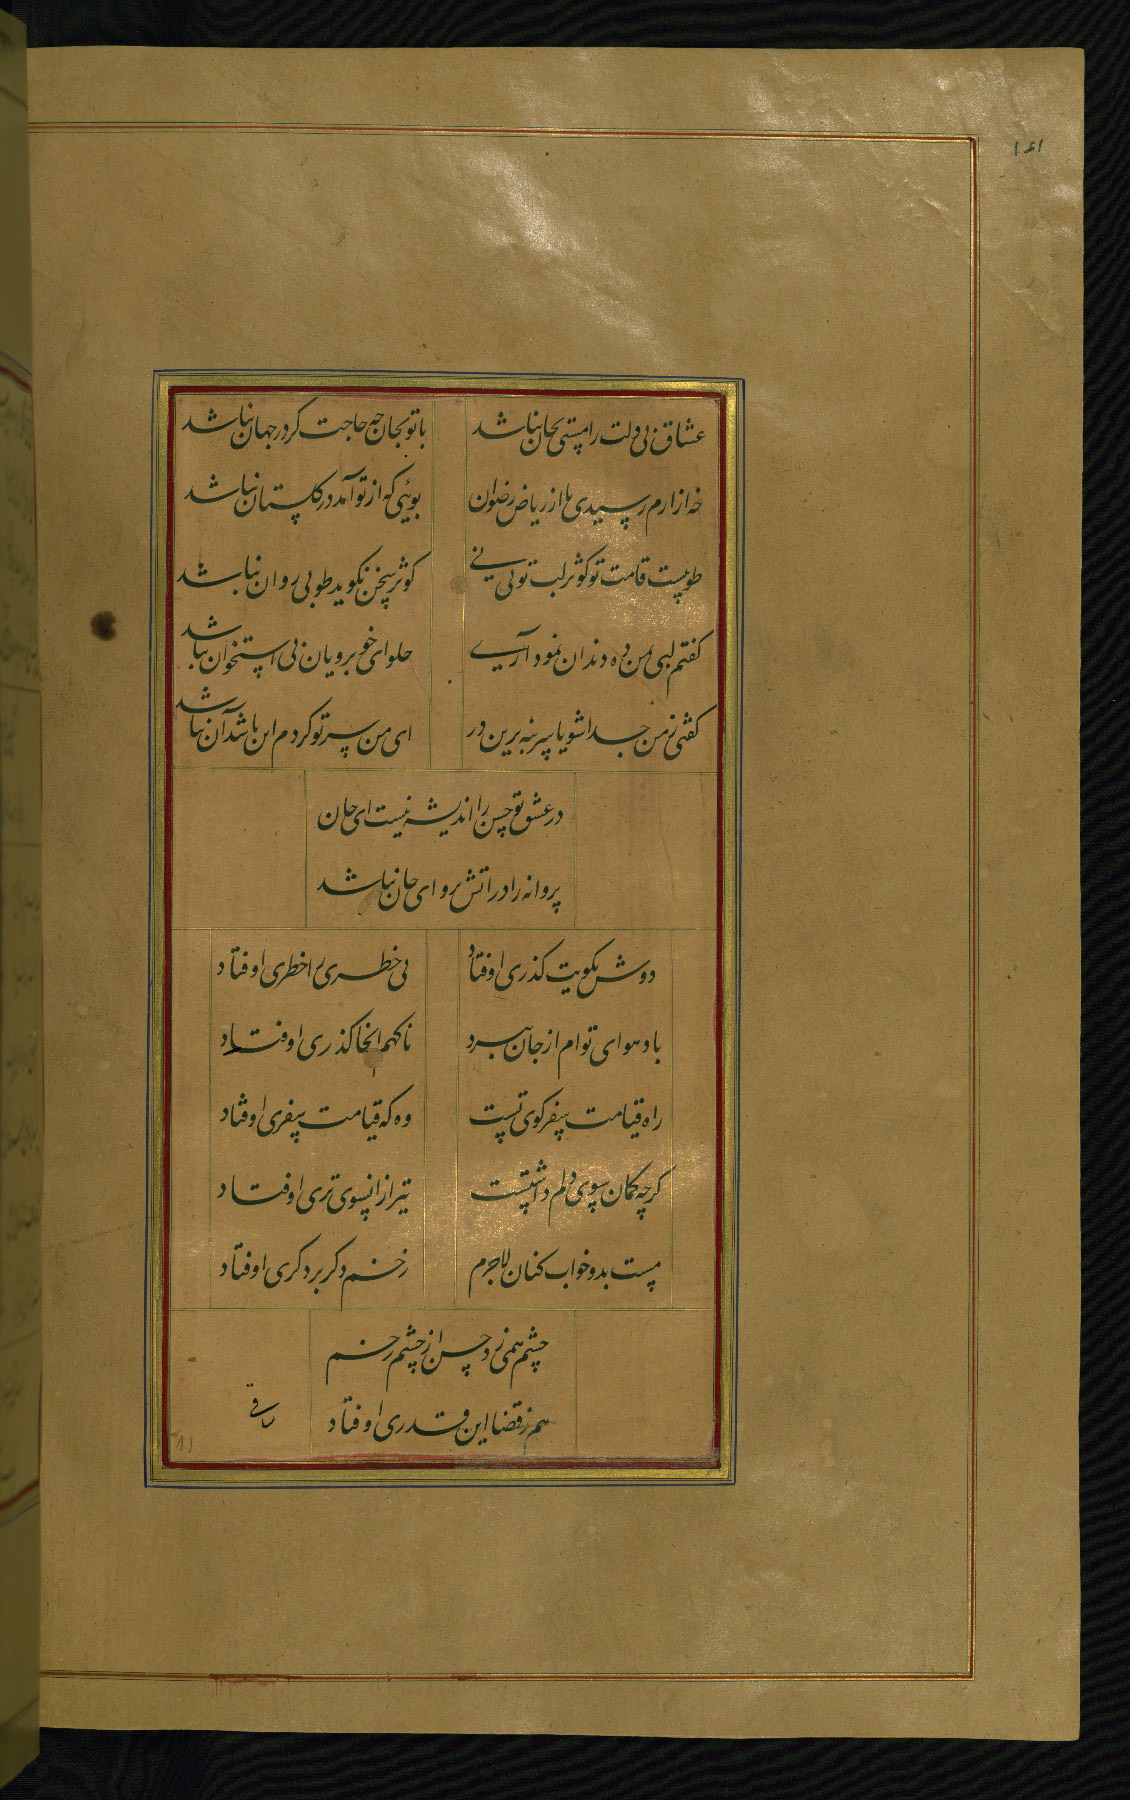 ۱۴۱
عشاق بی دلت را هستی بجان نباشد
با تو بجان چه حاجت کر در جهان نباشد
نه از ارم رسیدی یا از ریاض رضوان
بوئی که از تو آمد در کلستان نباشد
طوبیست قامت تو کوثر لب تو لی نی
کوثر سخن نکوید طوبی روان نباشد
کفتم لبی بمن ده دندان نمود آری
حلوای خوبرویان بی استخوان نباشد
کفتی ز من جدا شو یا سر بنه برین در
ای من سر تو کردم این باشد آن نباشد
در عشق تو حسن را اندیشه نیست ای جان
پروانه را در اتش پروای جان نباشد
دوش بکویت کذری اوفتاد
بی خطری را خطری اوفتاد
باد هوای توام از جان ببرد
ناکهم انجا کذری اوفتاد
راه قیامت سفر کوی تست
وه که قیامت سفری اوفتاد
کرچه کمان سوی دلم داشتست
تیر ازانسوی تری اوفتاد
مست بد و خواب کنان لاجرم
زخم دکر بر دکری اوفتاد
چشم همی زد حسن از چشم زخم
هم ز قضا این قدری اوفتاد
ساقی